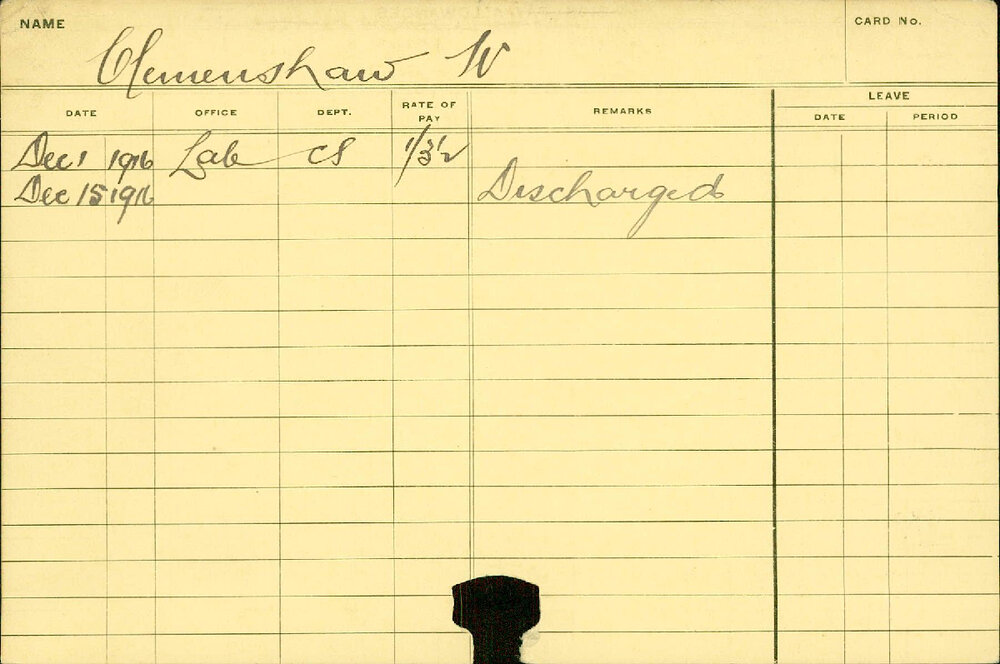 NAME
CARD No.
Clemenshaw W
DATE OFFICE DEPT. RATE OF PAY REMARKS LEAVE
DATE PERIOD
Dec 1 1916 Lab CS 1/3½
Dec 15 1916 Discharged